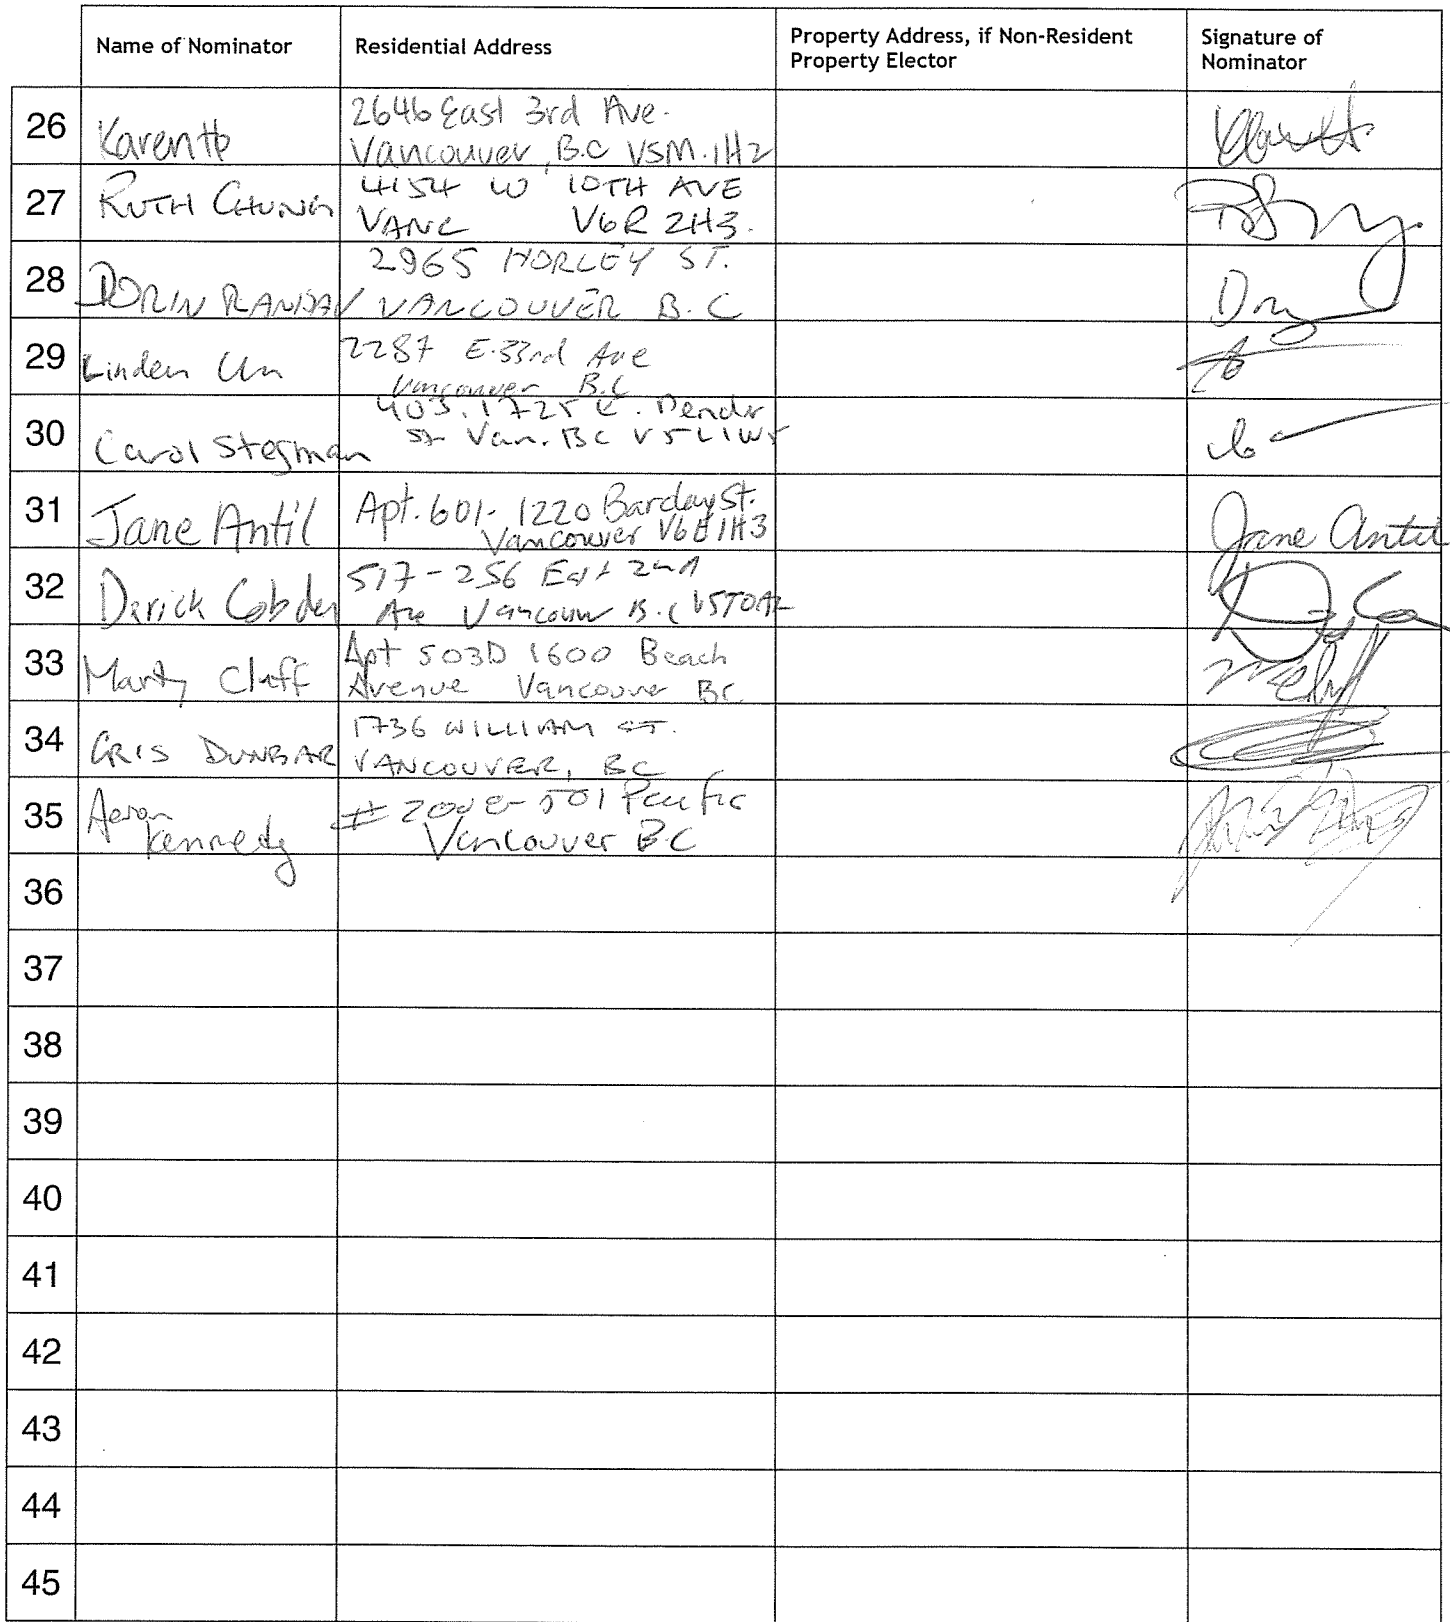 Name of Nominator
Residential Address
Property Address, if Non-Resident
Property Elector
Signature of
Nominator
26
Karen Ho
2646 East 3rd Ave.
Vancouver, B.C V5M.1H2
27
RUTH CHUNG
4154 W 10TH AVE
VANC V6R 2H3.
28
DORIN RANJAV
2965 HORLEY ST.
VANCOUVER B.C
29
Linden Um
2287 E.33rd Ave
Vancouver B.C
30
Carol Stegman
403.1725 E. Pender
St Van. BC V5L1W5
31
Jane Antil
Apt. 601- 1220 Barclay St.
Vancouver V6E1H3
Jane Antil
32
Derick Cobden
517-256 East 2nd
Ave Vancouver B.C V5T0A2
33
Marty Cluff
Apt 503D 1600 Beach
Avenue Vancouver BC
34
CRIS DUNBAR
1736 WILLIAM ST.
VANCOUVER, BC
35
Aeron
Kennedy
501 Pacific
Vancouver B.C
36
37
38
39
40
41
42
43
44
45